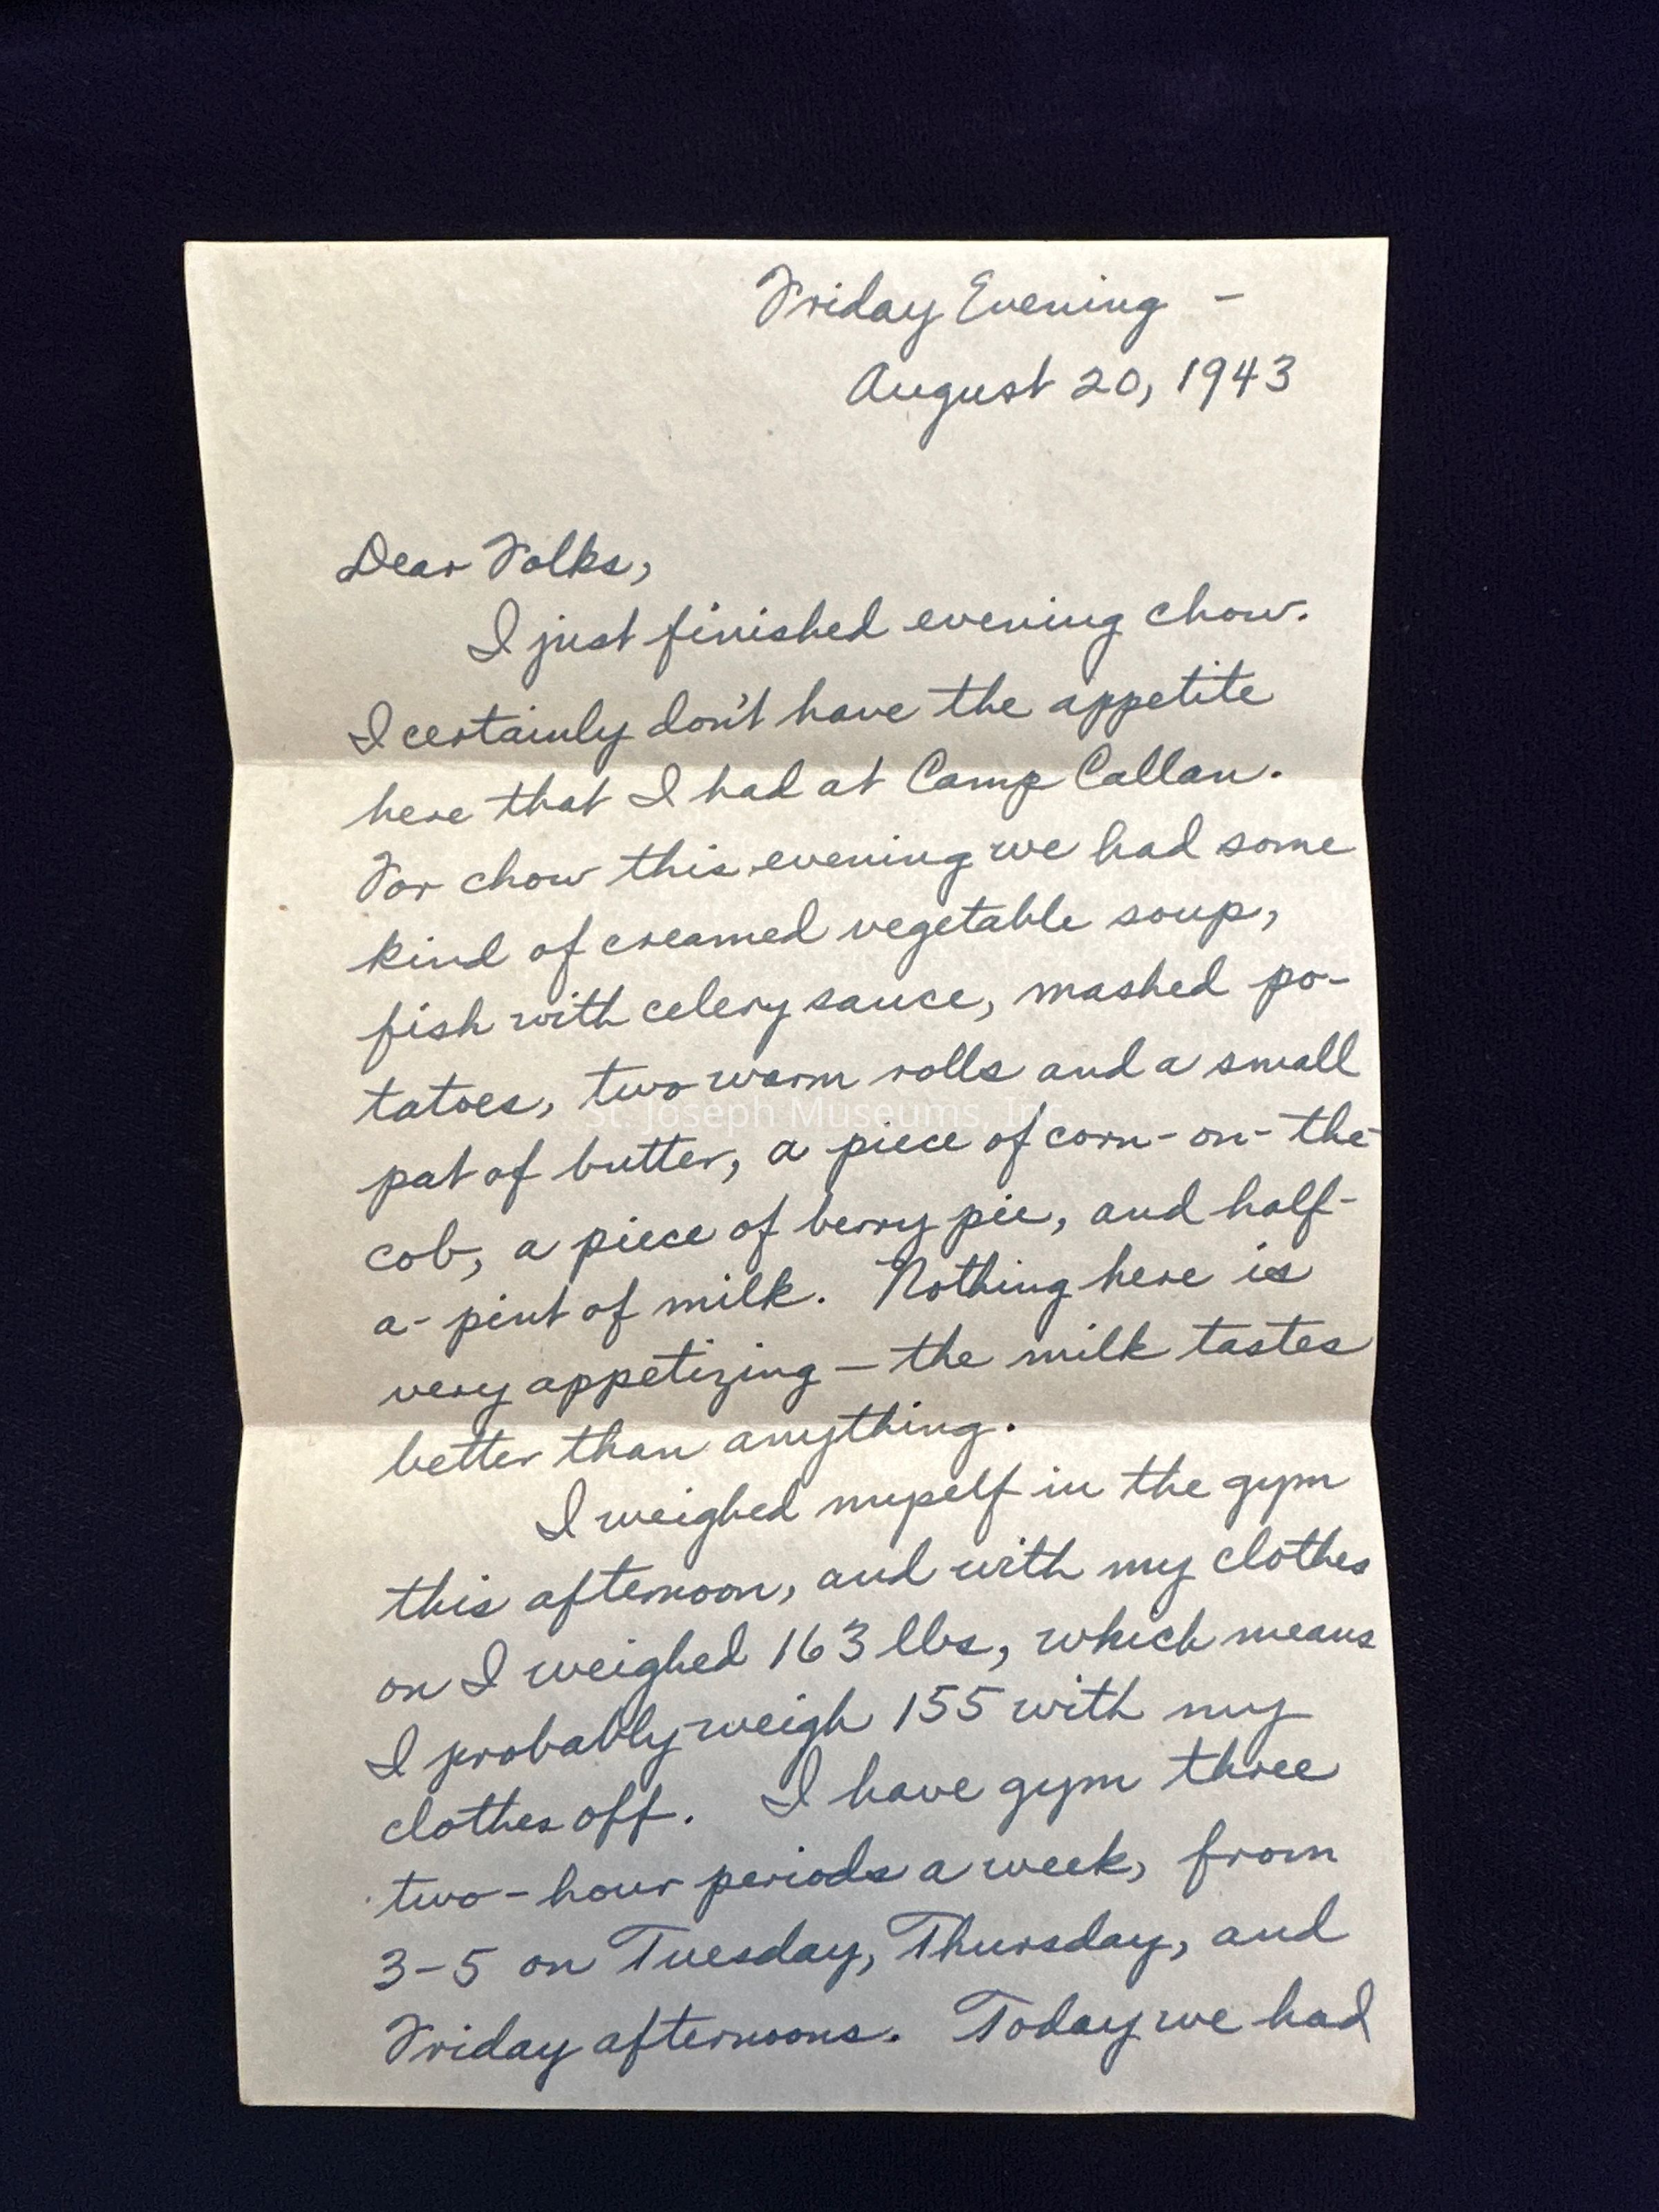 Friday Evening —
August 20, 1943
Dear Folks,
I just finished evening chow.
I certainly don't have the appetite
here that I had at Camp Callan.
For chow this evening we had some
kind of creamed vegetable soup,
fish with celery sauce, mashed po-
tatoes, two warm rolls and a small
St. Joseph Museums, Inc.
pat of butter, a piece of corn-on-the-
cob, a piece of berry pie, and half-
a-pint of milk. Nothing here is
very appetizing — the milk tastes
better than anything.
I weighed myself in the gym
this afternoon, and with my clothes
on I weighed 163 lbs, which means
I probably weigh 155 with my
clothes off. I have gym three
two-hour periods a week, from
3-5 on Tuesday, Thursday, and
Friday afternoons. Today we had